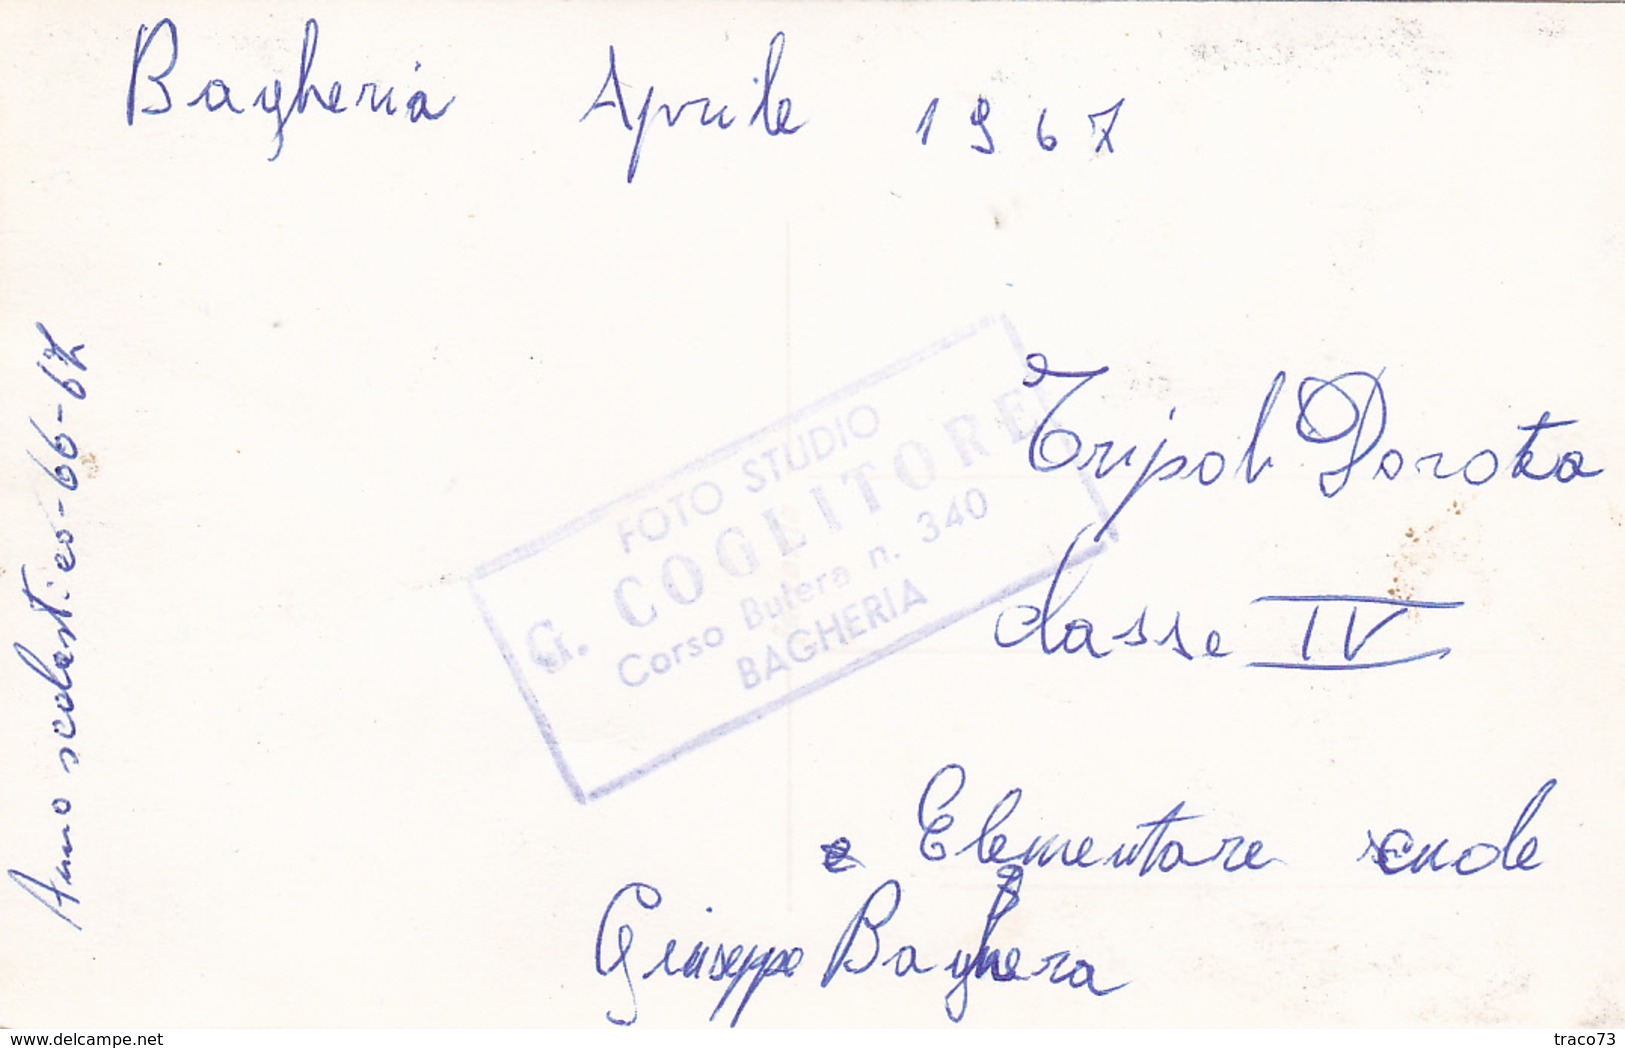 Bagheria Aprile 1967
Anno scolastico-66-67
FOTO STUDIO
G. COGLITORE
Corso Butera n. 340
BAGHERIA
Tripoli
classe IV
e Elementare
Giuseppe Baghera
www.delcampe.net
traco73